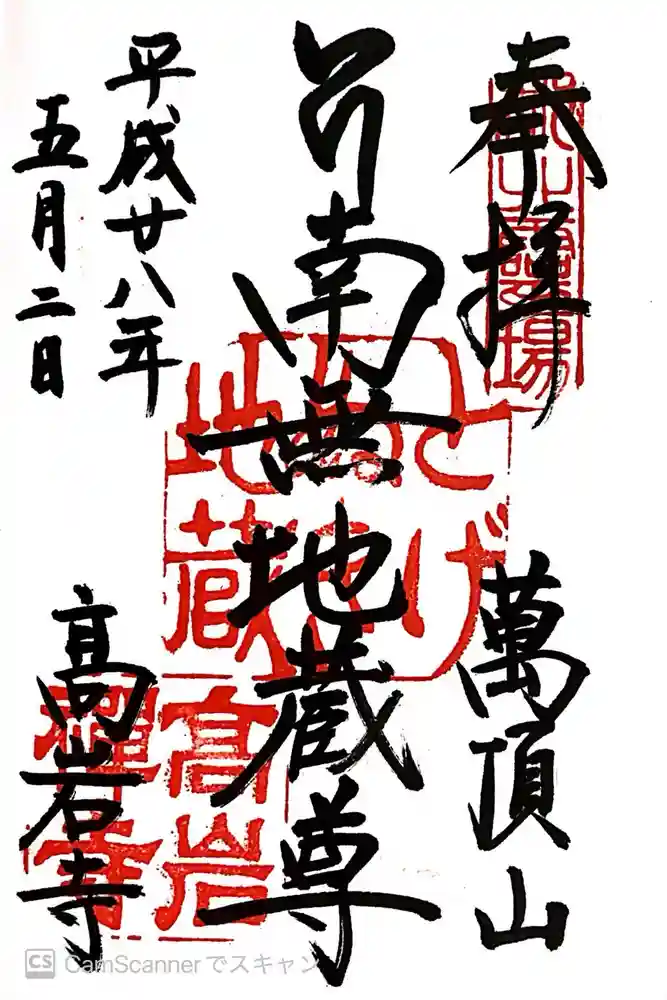 奉拝
萬頂山
南無地蔵尊
平成廿八年
五月二日
高岩寺
霊場
とげぬき
地蔵
高岩
禅寺
CS CamScannerでスキャン